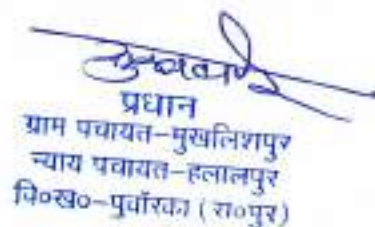 प्रधान
ग्राम पचायत-मुखलिशपुर
न्याय पचायत-हलालपुर
वि०ख०-पुवॉरका (रा०पुर)